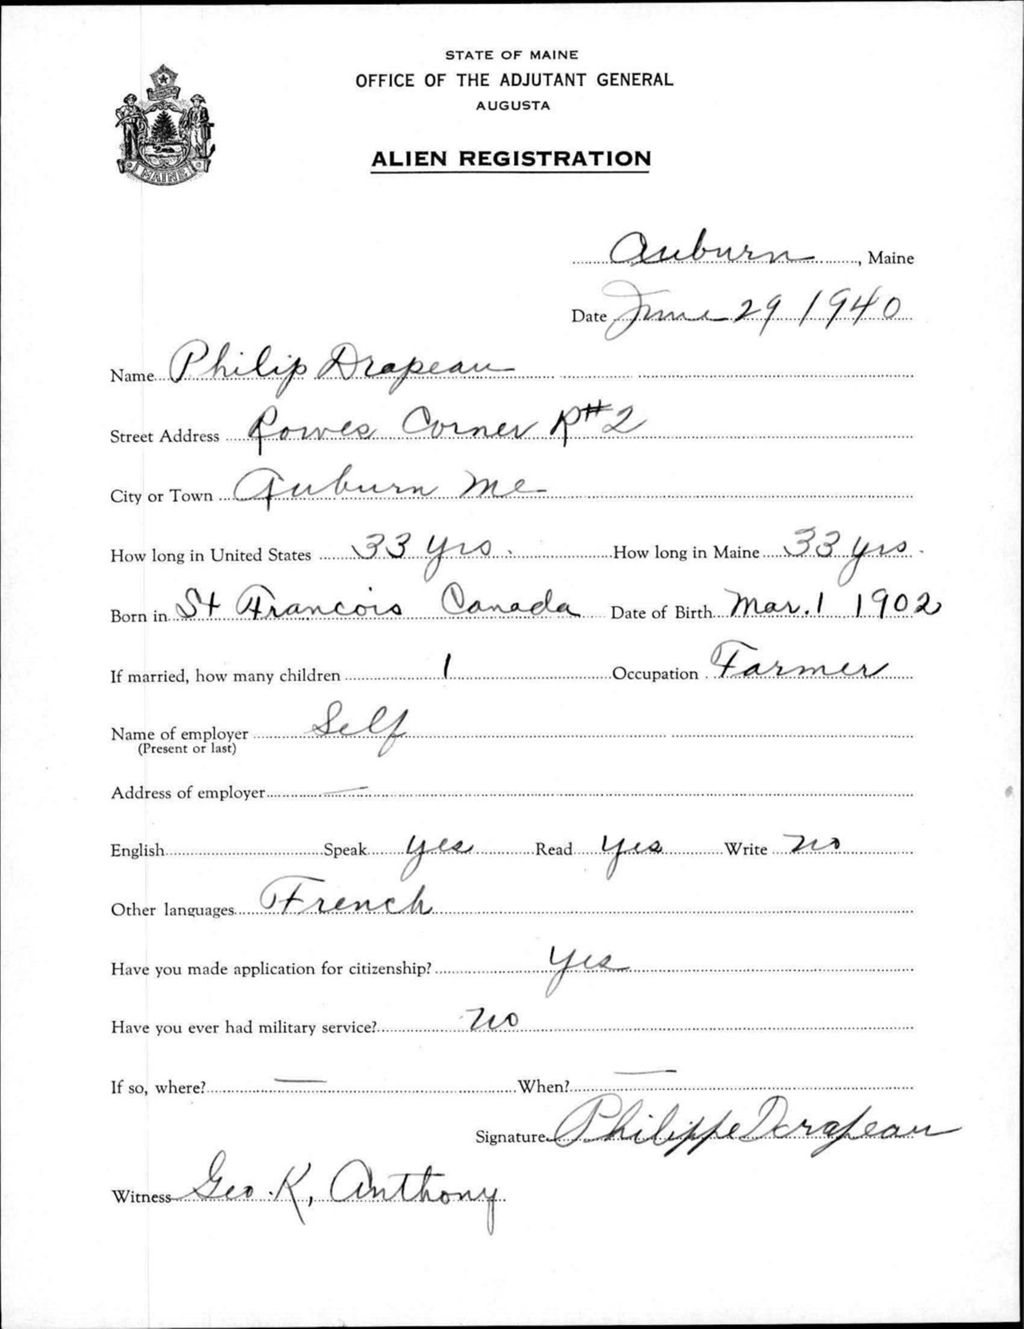 STATE OF MAINE
OFFICE OF THE ADJUTANT GENERAL
AUGUSTA
ALIEN REGISTRATION
MAINE
Auburn, Maine
Date June 29 1940
Name Philip Drapeau
Street Address Rowes Corner R#2
City or Town Auburn Me
How long in United States 33 yrs. How long in Maine 33 yrs.
Born in St Francois Canada Date of Birth Mar. 1 1902
If married, how many children 1 Occupation Farmer
Name of employer Self
(Present or last)
Address of employer —
English Speak yes Read yes Write no
Other languages French
Have you made application for citizenship? Yes
Have you ever had military service? no
If so, where? — When? —
Signature Philippe Drapeau
Witness Geo. K. Anthony